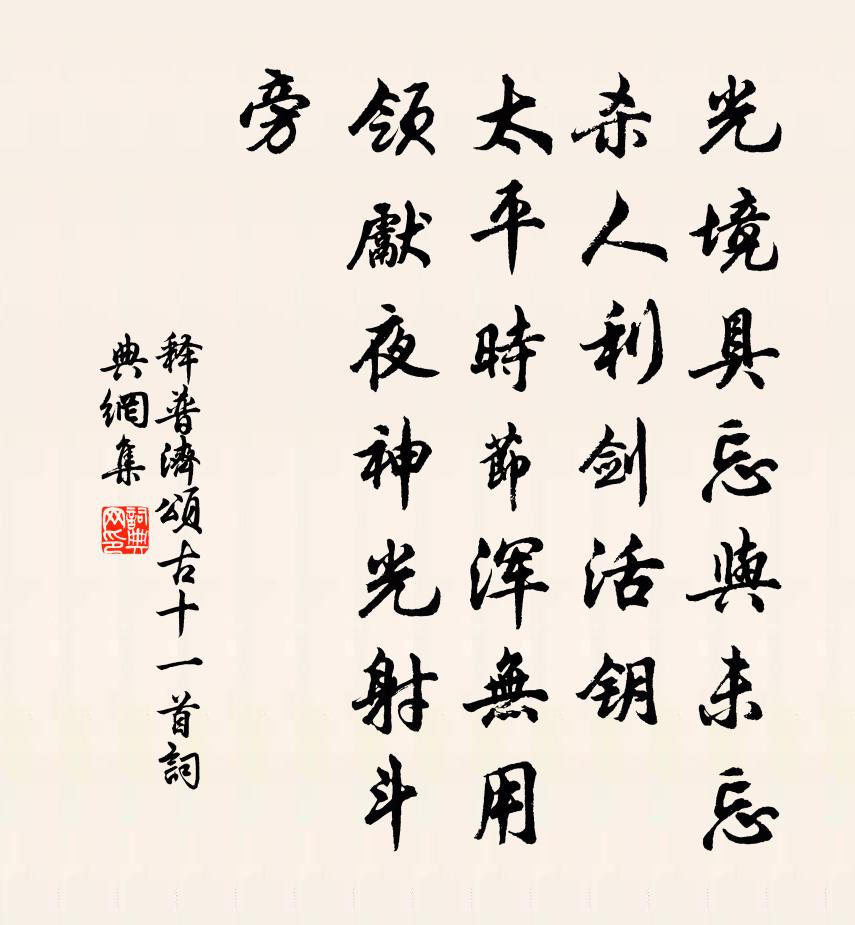 光境具忘與未忘
杀人利剑活钥
太平時節浑無用
领獻夜神光射斗
旁
释普濟頌古十一首詞
典網集
詞典
网印